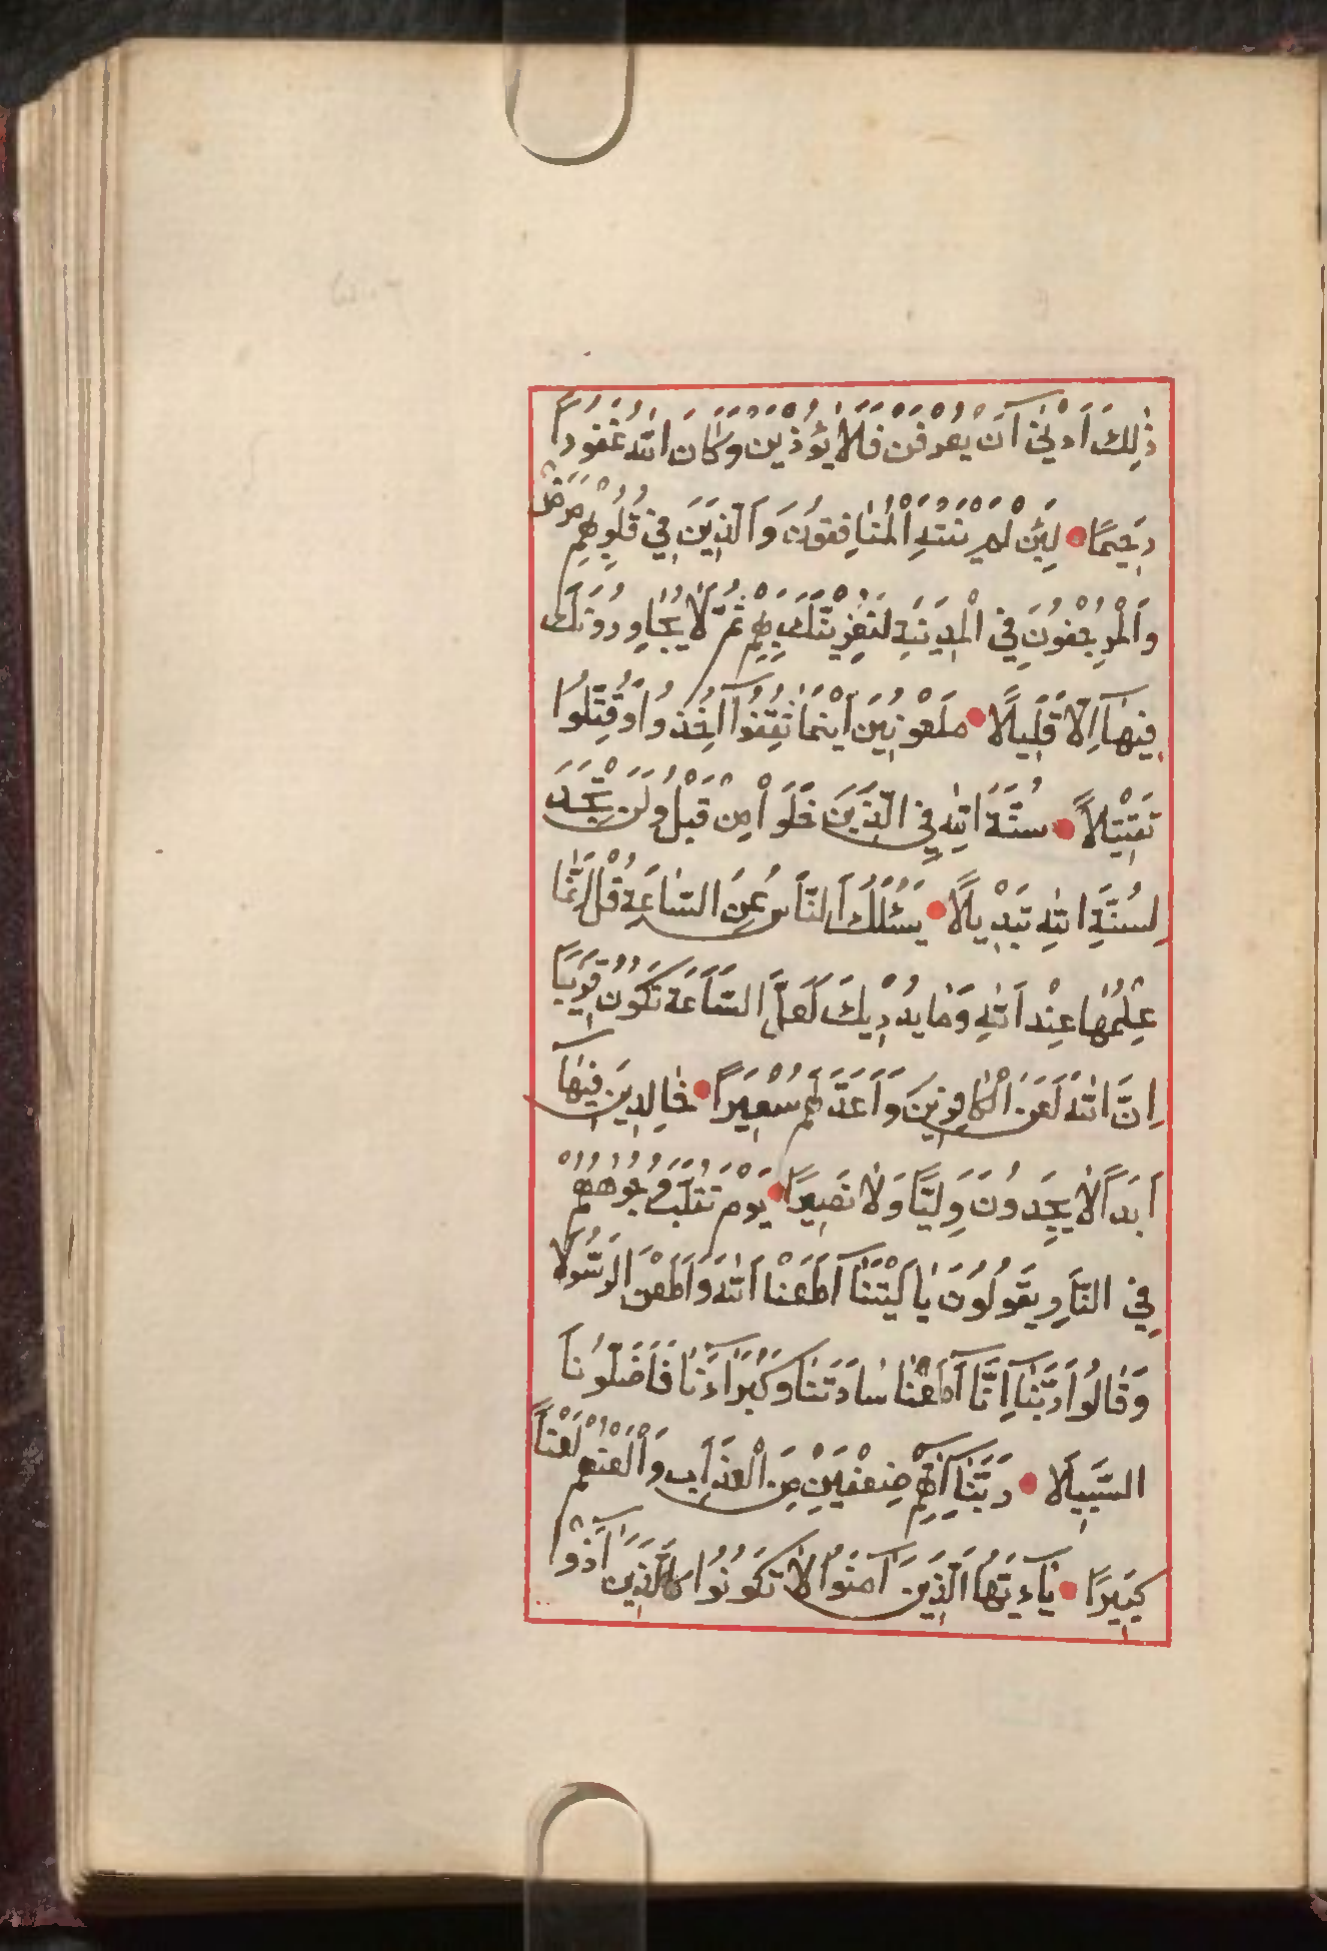 ذٰلِكَ اَدْنٰىٓ اَنْ يُعْرَفْنَ فَلَا يُؤْذَيْنَ وَكَانَ اللّٰهُ غَفُورًا
رَحِيمًا لَئِنْ لَمْ يَنْتَهِ الْمُنَافِقُونَ وَالَّذِينَ فِي قُلُوبِهِمْ مَرَضٌ
وَالْمُرْجِفُونَ فِي الْمَدِينَةِ لَنُغْرِيَنَّكَ بِهِمْ ثُمَّ لَا يُجَاوِرُونَكَ
فِيهَآ اِلَّا قَلِيلًا مَلْعُونِينَ اَيْنَمَا ثُقِفُوٓا اُخِذُوا وَقُتِّلُوا
تَقْتِيلًا سُنَّةَ اللّٰهِ فِي الَّذِينَ خَلَوْا مِنْ قَبْلُ وَلَنْ تَجِدَ
لِسُنَّةِ اللّٰهِ تَبْدِيلًا يَسْئَلُكَ النَّاسُ عَنِ السَّاعَةِ قُلْ اِنَّمَا
عِلْمُهَا عِنْدَ اللّٰهِ وَمَا يُدْرِيكَ لَعَلَّ السَّاعَةَ تَكُونُ قَرِيبًا
اِنَّ اللّٰهَ لَعَنَ الْكَافِرِينَ وَاَعَدَّ لَهُمْ سَعِيرًا خَالِدِينَ فِيهَآ
اَبَدًا لَا يَجِدُونَ وَلِيًّا وَلَا نَصِيرًا يَوْمَ تُقَلَّبُ وُجُوهُهُمْ
فِي النَّارِ يَقُولُونَ يَا لَيْتَنَآ اَطَعْنَا اللّٰهَ وَاَطَعْنَ الرَّسُولَا
وَقَالُوا رَبَّنَآ اِنَّآ اَطَعْنَا سَادَتَنَا وَكُبَرَآءَنَا فَاَضَلُّونَا
السَّبِيلَا رَبَّنَآ اٰتِهِمْ ضِعْفَيْنِ مِنَ الْعَذَابِ وَالْعَنْهُمْ لَعْنًا
كَبِيرًا يَآءَيُّهَا الَّذِينَ اٰمَنُوا لَا تَكُونُوا كَالَّذِينَ اٰذَوْا